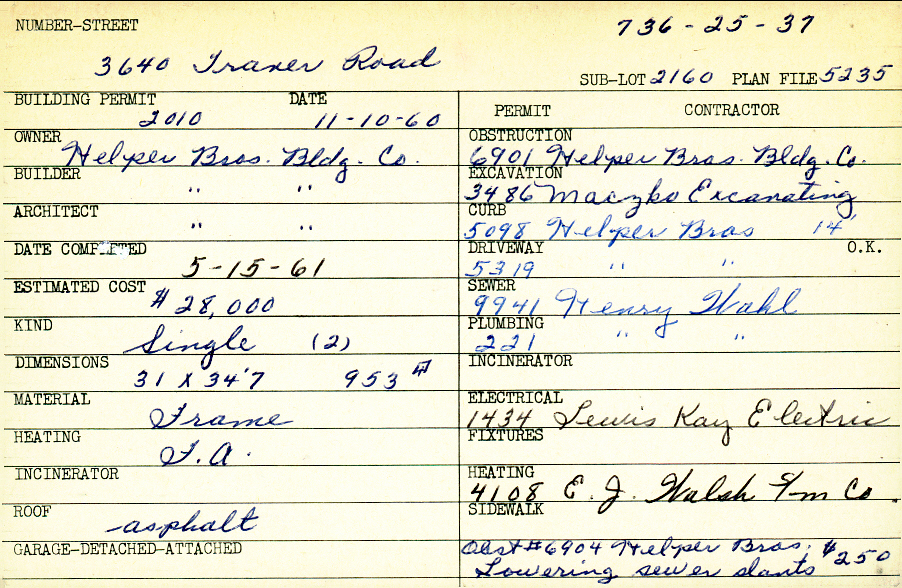 NUMBER-STREET
736-25-37
3640 Traver Road
SUB-LOT 2160 PLAN FILE 5235
BUILDING PERMIT DATE
2010 11-10-60
OWNER
Helper Bros. Bldg. Co.
BUILDER
" "
ARCHITECT
" "
DATE COMPLETED
5-15-61
ESTIMATED COST
$28,000
KIND
Single (2)
DIMENSIONS
31 X 34'7 953 #
MATERIAL
Frame
HEATING
F.A.
INCINERATOR
ROOF
asphalt
GARAGE-DETACHED-ATTACHED
PERMIT CONTRACTOR
OBSTRUCTION
6901 Helper Bros. Bldg. Co.
EXCAVATION
3486 Maczko Excavating
CURB
5098 Helper Bros 14'
DRIVEWAY O.K.
5319 " "
SEWER
9941 Henry Wahl
PLUMBING
221 " "
INCINERATOR
ELECTRICAL
1434 Lewis Kay Electric
FIXTURES
HEATING
4108 E. J. Walsh Co.
SIDEWALK
Obst #6904 Helper Bros. $250
Lowering sewer slants